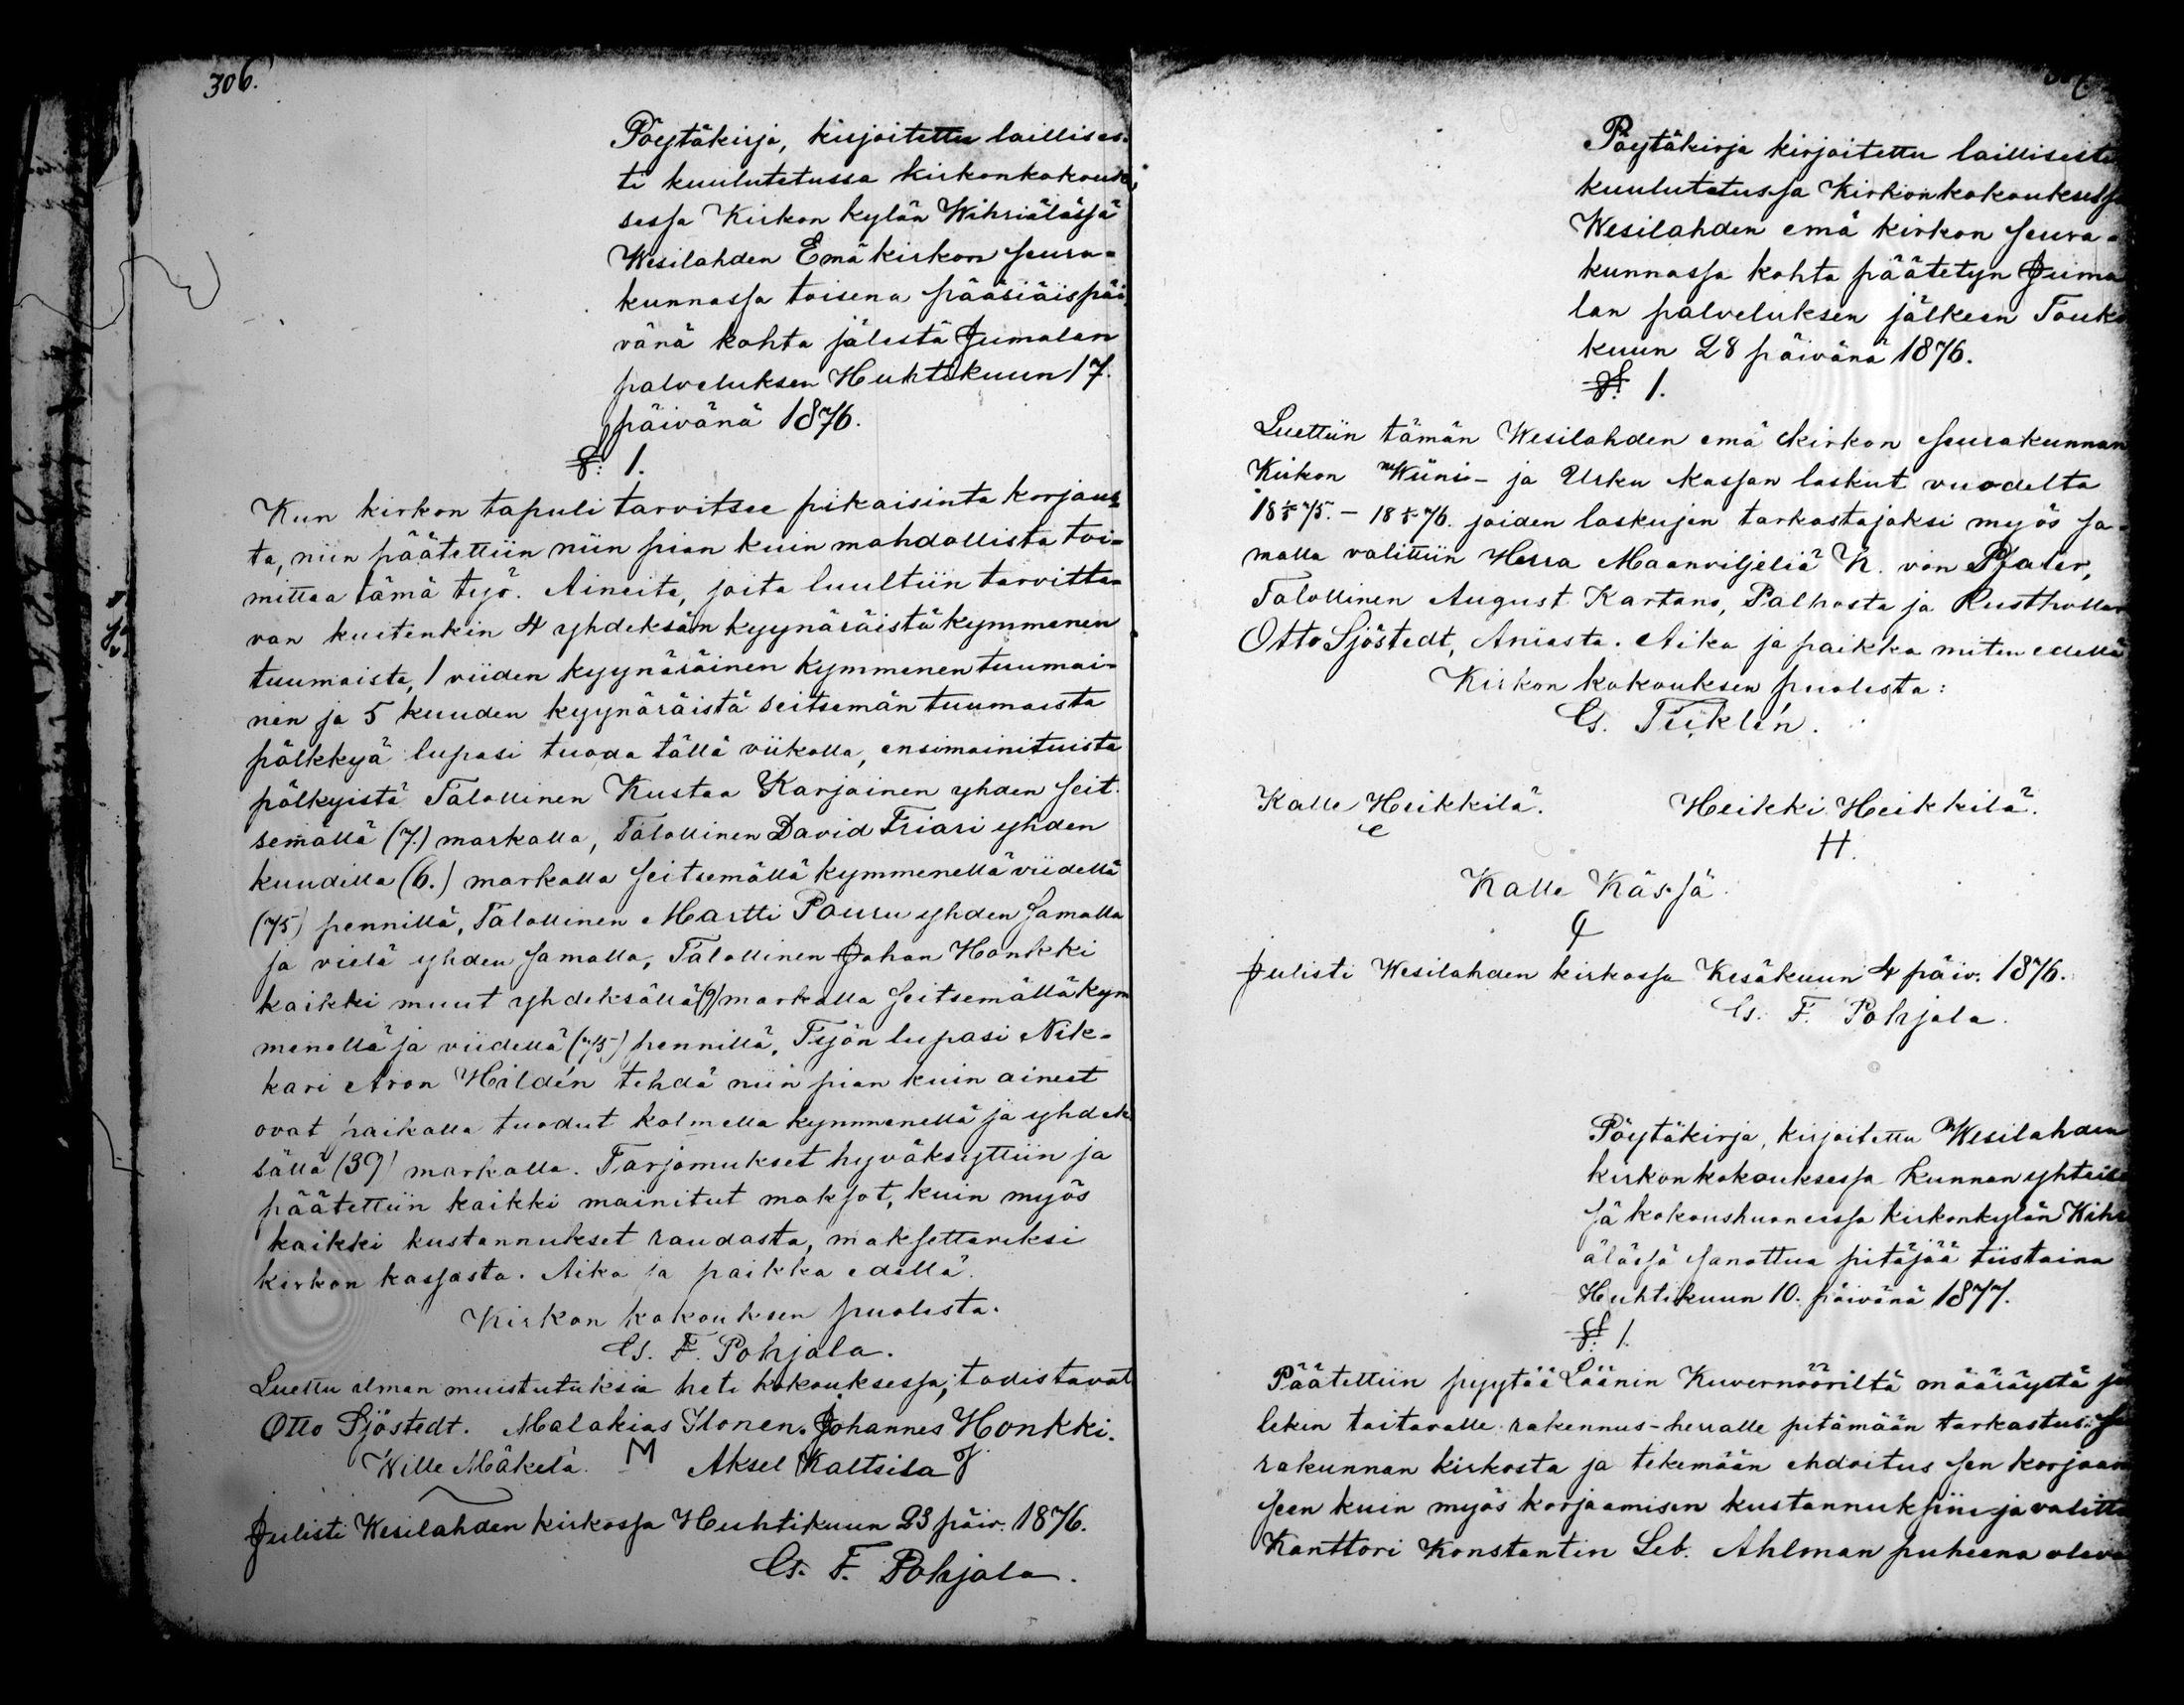 306.
Pöytäkirja, kirjoitettu laillises-
ti kuulutetussa kirkonkokouk-
sessa Kirkon kylän Wihriälässä
Wesilahden Emäkirkon seura-
kunnassa toisena pääsiäispäi-
vänä kohta jälestä Jumalan
palveluksen Huhtikuun 17.
päivänä 1876.
§: 1.
Kun kirkon tapuli tarvitsee pikaisinta korjaus-
ta, niin päätettiin niin pian kuin mahdollista toi-
mittaa tämä työ. Aineita, joita luultiin tarvitta-
van kuitenkin 4 yhdeksän kyynäräistä kymmenen
tuumaista, 1 viiden kyynäräinen kymmenen tuumai-
nen ja 5 kuuden kyynäräistä seitsemän tuumaista
pölkkyä lupasi tuoda tällä viikolla, ensimainituista
pölkyistä Talollinen Kustaa Karjainen yhden seit-
semällä (7.) markalla, Talollinen David Friari yhden
kuudella (6.) markalla seitsemällä kymmenellä viidellä
(75) pennillä, Talollinen Martti Pouru yhden samalla
ja vielä yhden samalla, Talollinen Johan Honkki
kaikki muut yhdeksällä (9) markalla seitsemällä kym
menellä ja viidellä (75) pennillä. Työn lupasi Nik-
kari Aron Hildén tehdä niin pian kuin aineet
ovat paikalla tuodut kolmella kymmenellä ja yhdek
sällä (39) markalla. Tarjomukset hyväksyttiin ja
päätettiin kaikki mainitut maksot, kuin myös
kaikki kustannukset raudasta, maksettaviksi
kirkon kassasta. Aika ja paikka edellä.
Kirkon kokouksen puolesta.
Cs. F. Pohjala.
Luettu ilman muistutuksia heti kokouksessa, todistavat
Otto Sjöstedt. Malakias Ilonen. Johannes Honkki.
Wille Mäkelä. M Aksel Kaltsila
Julisti Wesilahden kirkossa Huhtikuun 23 päiv. 1876.
Cs. F. Pohjala.
Pöytäkirja kirjoitettu laillisesti
kuulutetussa Kirkonkokouksessa
Wesilahden emä kirkon seura-
kunnassa kohta päätetyn Juma
lan palveluksen jälkeen Touko
kuun 28 päivänä 1876.
§: 1.
Luettiin tämän Wesilahden emä kirkon seurakunnan
Kirkon Wiini- ja Urku kassan laskut vuodelta
18 1/5 75. - 18 1/5 76. joiden laskujen tarkastajaksi myös sa-
malla valittiin Herra Maanviljeliä K. von Pfaler,
Talollinen August Kartano, Palhosta ja Rusthollari
Otto Sjöstedt, Aniasta. Aika ja paikka miten edellä
Kirkon kokouksen puolesta:
Cs. Tücklén.
Kalle Heikkilä. Heikki Heikkilä.
H.
Kalle Kässä.
Julisti Wesilahden kirkossa Kesäkuun 4 päiv. 1876.
Cs. F. Pohjala.
Pöytäkirja, kirjoitettu Wesilahden
kirkonkokouksessa kunnan yhteise
sä kokoushuoneessa kirkonkylän Wihr
älässä sanottua pitäjää tiistaina
Huhtikuun 10. päivänä 1877.
§: 1.
Päätettiin pyytää Läänin Kuvernööriltä määräystä jol
lekin taitavalle rakennus-herralle pitämään tarkastus seu
rakunnan kirkosta ja tekemään ehdoitus sen korjaami
seen kuin myös korjaamisen kustannuksiin ja valitti
Kanttori Konstantin Seb. Ahlman puheena oleva